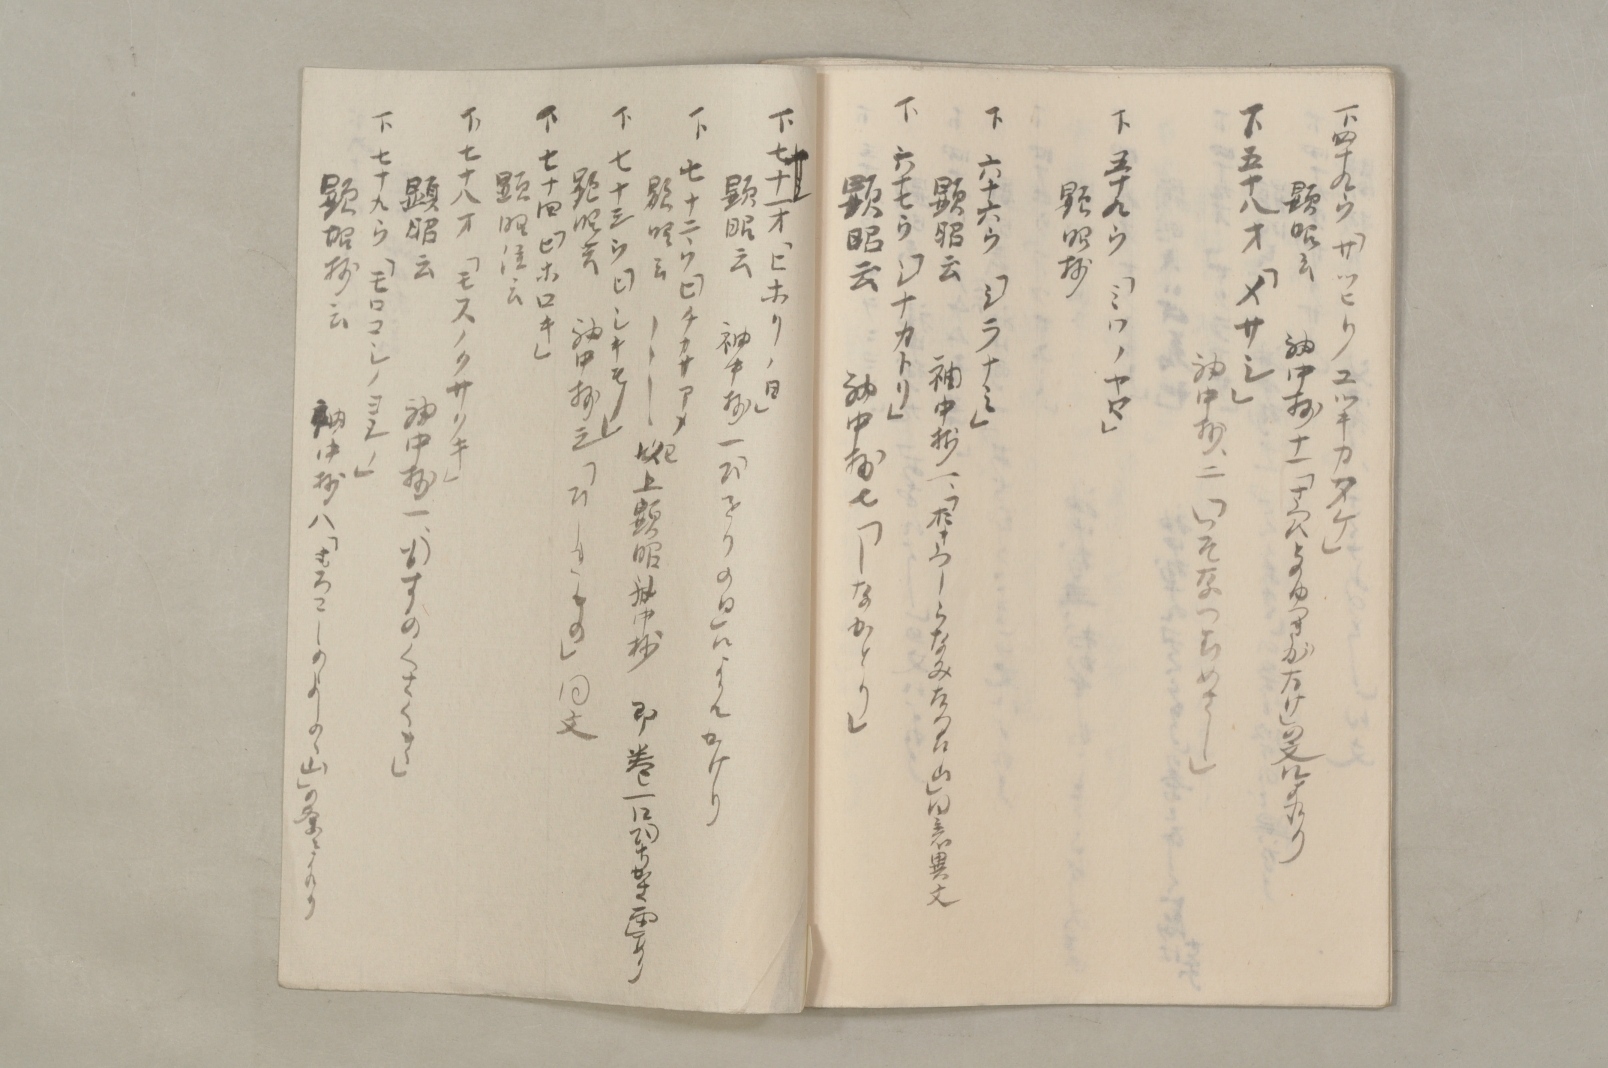 下四十九ウ「サツヒリノユツキカタケ」
顕昭云　袖中抄十一「ゆつきがたけ」の文にあり
下五十八オ「メサシ」
袖中抄、二「いそなつむめさし」
下五十九ウ「ミツノヤマ」
顕昭抄
下六十六ウ「シラナミ」
顕昭云　袖中抄一、「おきつしらなみたつた山」同意異文
下六十七ウ「シナカトリ」
顕昭云　袖中抄七「しなかとり」
下七十一オ「ヒホリノ日」
顕昭云　袖中抄一「ひをりの日」に
下七十二ウ「ヒチカサアメ
顕昭云　以上顕昭袖中抄　即巻一に「ひちかさ雨」あり
下七十三ウ「ヒシキモノ」
顕昭云　袖中抄三「ひしきもの」同文
下七十四「ヒホロキ」
顕昭注云
下七十八オ「モスノクサクキ」
顕昭云　袖中抄一、「もすのくさくき」
下七十九ウ「モロコシノヨシノ」
顕昭抄云　袖中抄八「もろこしのよしのゝ山」の